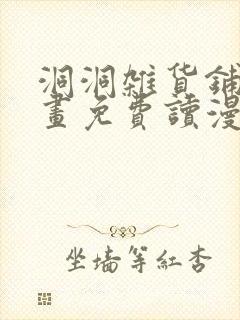 洞洞雜貨鋪
畫免費讀漫
坐墙等紅杏